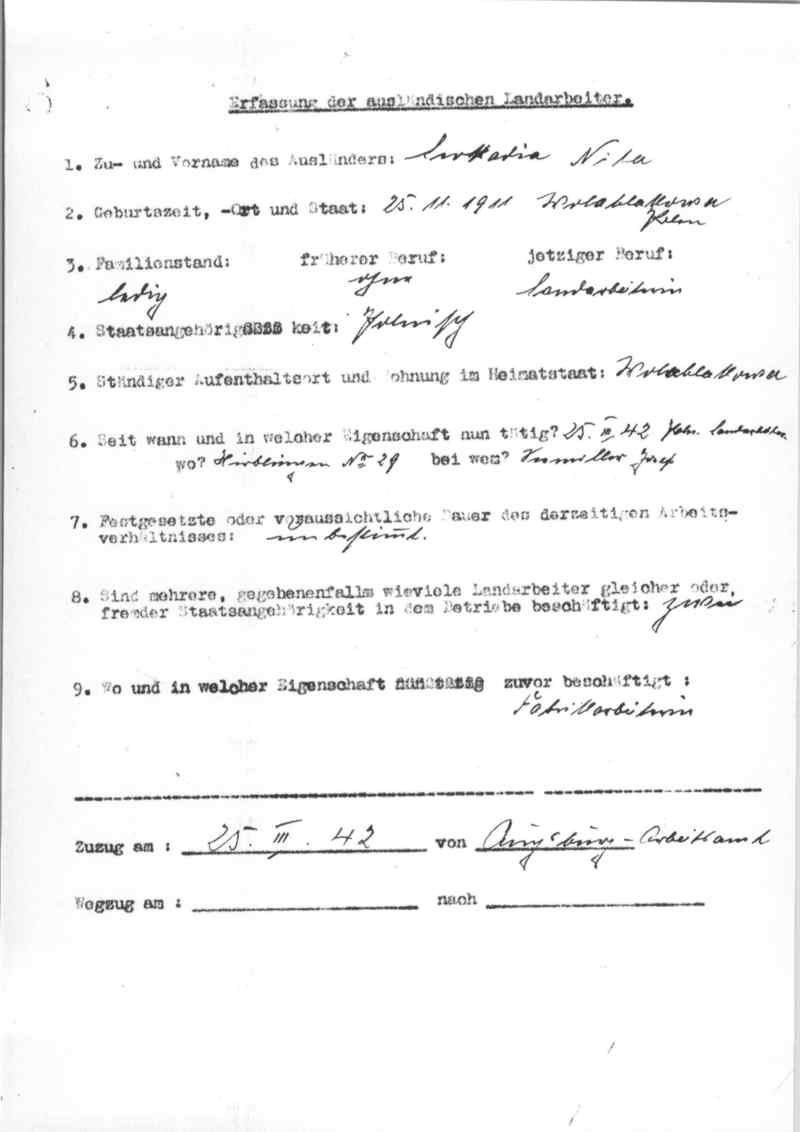 Erfassung der ausländischen Landarbeiter.
1. Zu- und Vorname des Ausländers: Nita
2. Geburtszeit, -Ort und Staat: 25. 11. 1911 Wolablakowa
Polen
3. Familienstand: früherer Beruf: jetziger Beruf:
ledig ohne Landarbeiterin
4. Staatsangehörig keit: Polnisch
5. Ständiger Aufenthaltsort und Wohnung im Heimatstaat: Wolablakowa
6. Seit wann und in welcher Eigenschaft nun tätig? 25. III. 42
wo? Hirblingen No 29 bei wem? Josef
7. Festgesetzte oder voraussichtliche Dauer des derzeitigen Arbeits-
verhältnisses: unbestimmt.
8. Sind mehrere, gegebenenfalls wieviele Landarbeiter gleicher oder,
fremder Staatsangehörigkeit in dem Betriebe beschäftigt: zwei
9. Wo und in welcher Eigenschaft zuvor beschäftigt :
Fabrikarbeiterin
Zuzug am : 25. III. 42 von Augsburg - Arbeitsamt
Wegzug am : nach